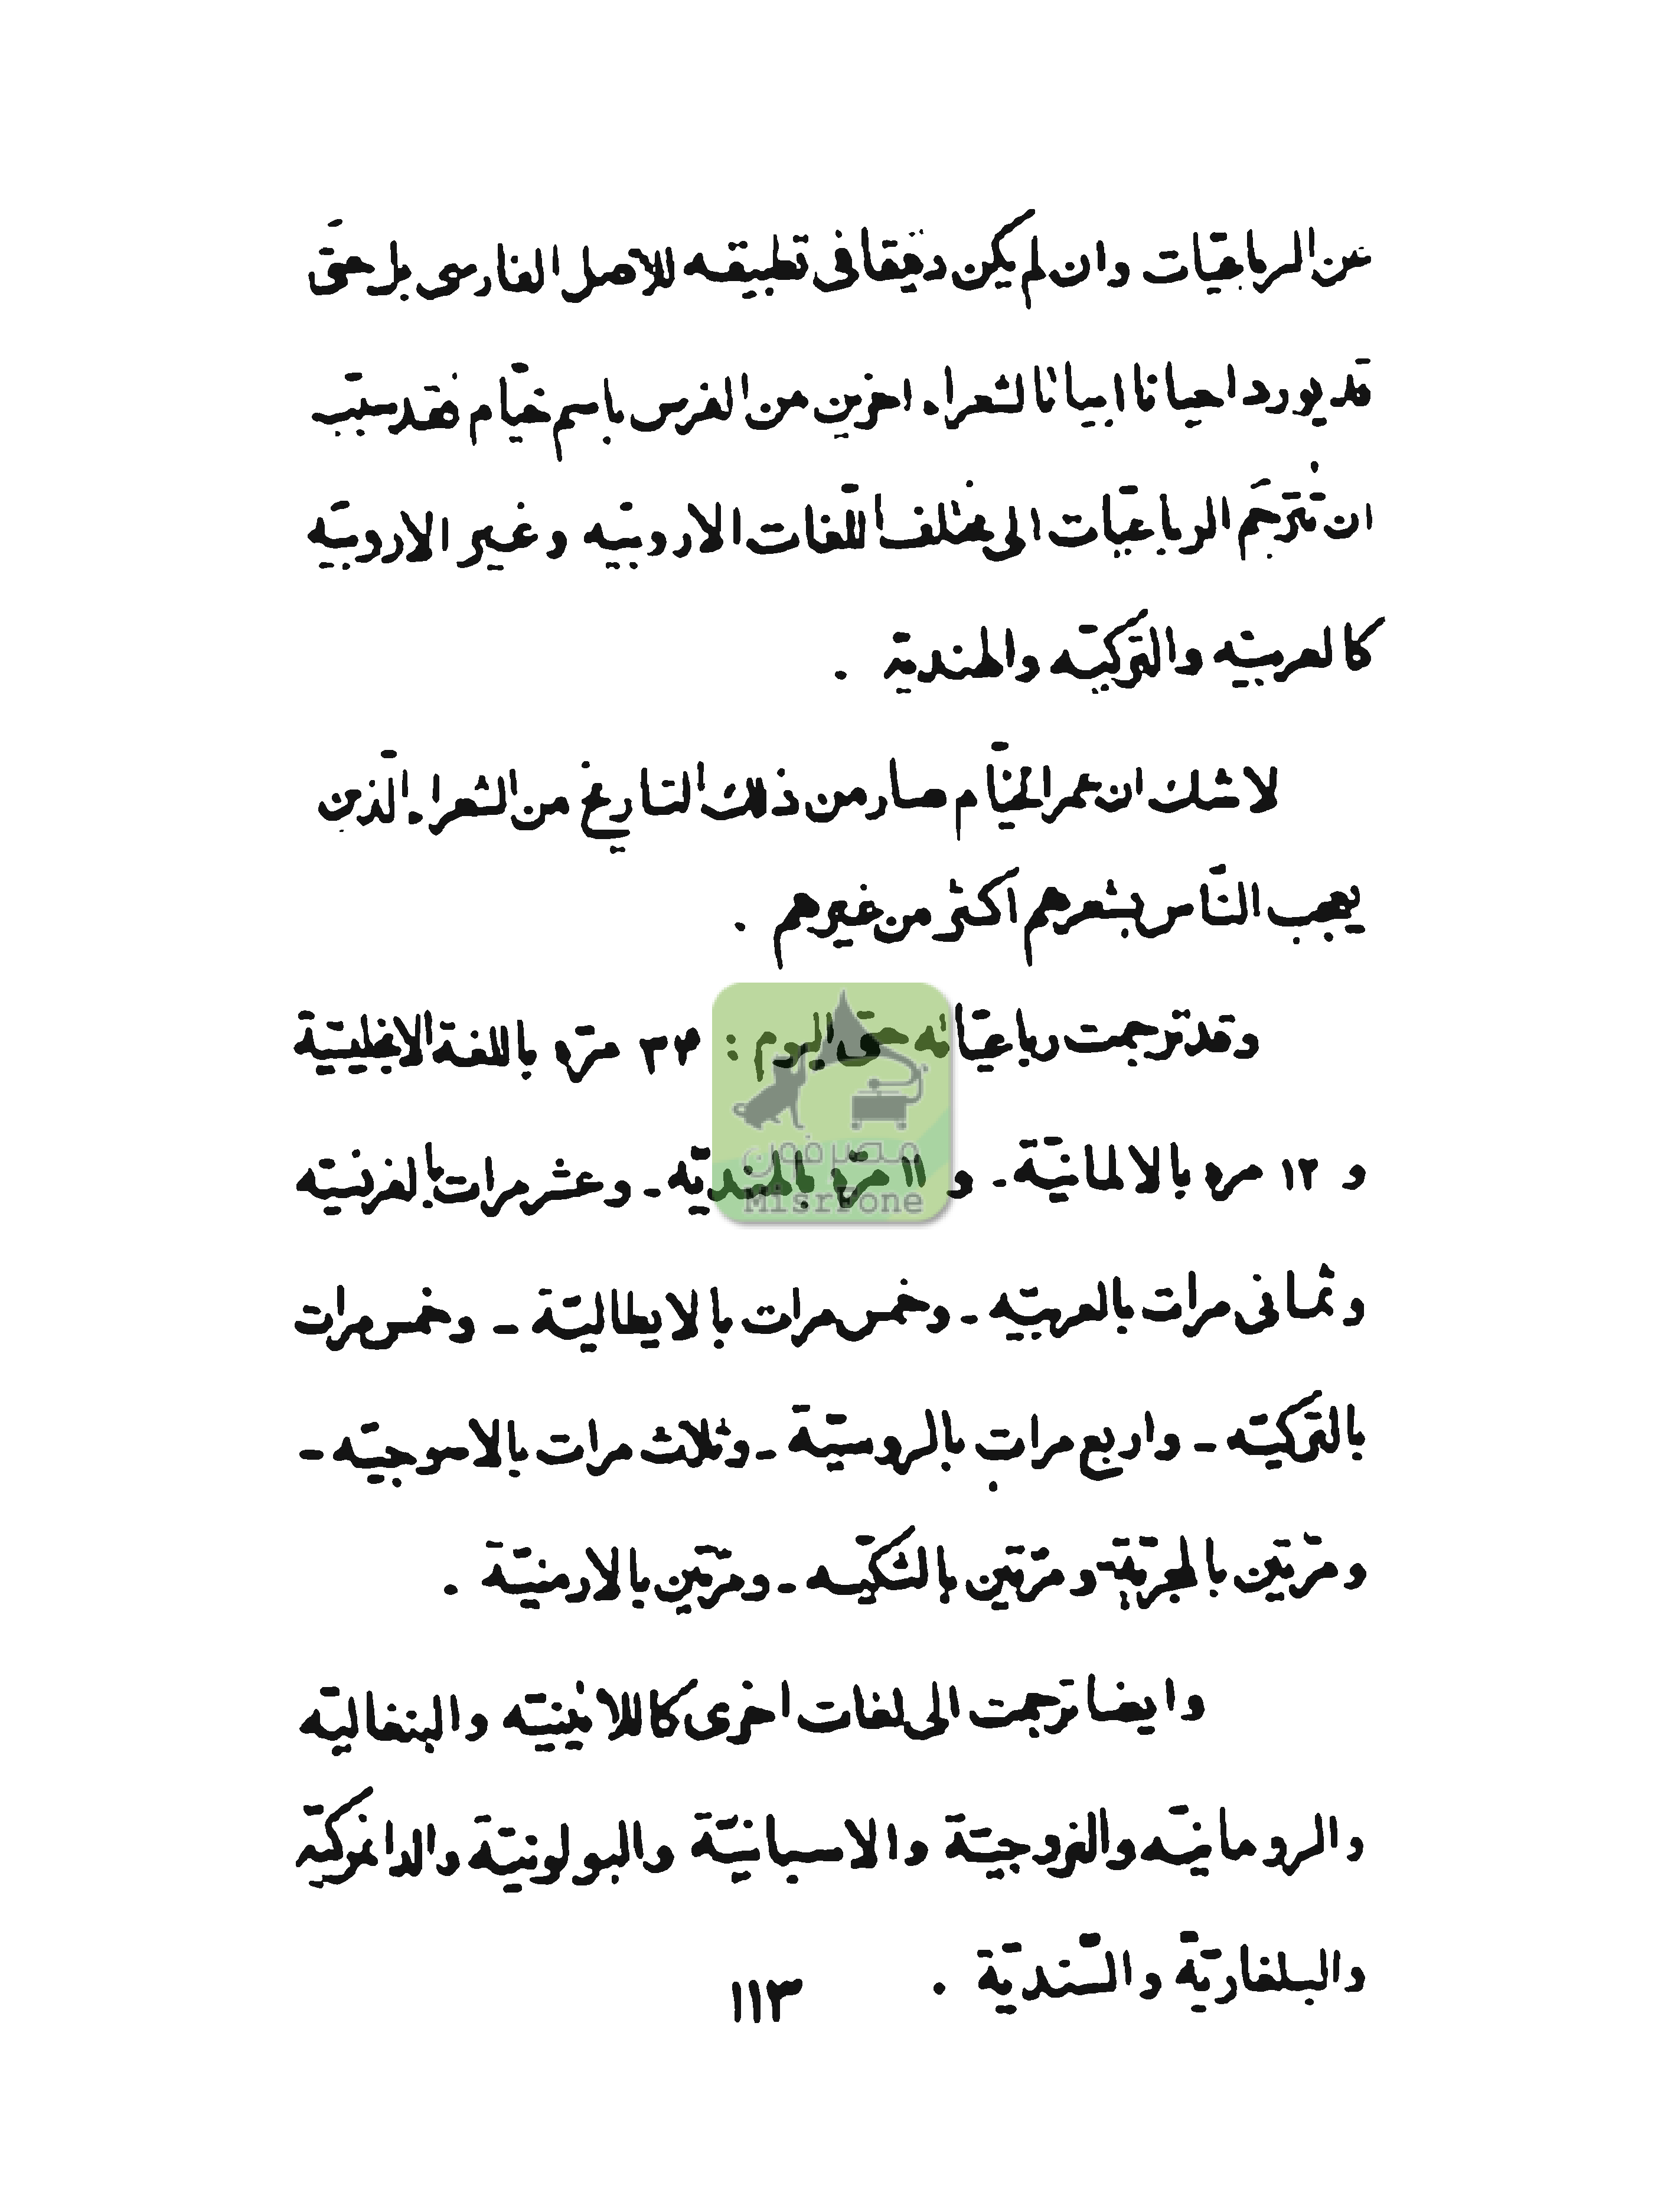 عن الرباعيّات وان لم يكن دقيقا فى تطبيقه للاصل الفارسى بل حتّى
قد يورد احيانا ابياتا لشعراء اخرين من الفرس باسم خيّام فقد سبّب
ان تُترجَم الرباعيّات الى مختلف اللّغات الاروبيّه وغير الاروبيّه
كالعربيّه والتركيّه والهنديّة .
لاشك ان عمر الخيّام صار من ذلك التاريخ من الشعراء الّذين
يعجب النّاس بشعرهم اكثر من غيرهم .
وقد ترجمت رباعيّاته حتى اليوم : ٣٣ مرّه باللغة الانجليسيّة
و ١٢ مره بالالمانيّة - و ١١ مرّة بالهنديّه - وعشر مرات بالفرنسيّه
وثمانى مرات بالعربيّه - وخمس مرات بالايطاليّة - وخمس مرات
بالتركيّه - واربع مرات بالروسيّة - وثلاث مرات بالاسوجيّه -
ومرّتين بالمجريّة - ومرّتين بالتشكيّه - ومرّتين بالارمنيّة .
وايضا ترجمت الى لغات اخرى كاللاتينيّه والبنغاليّه
والرومانيّه والنروجيّة والاسبانيّة والبولونيّة والدانمركيّه
والبلغاريّة والسّنديّة .
١١٣
مصرفون
MisrFone